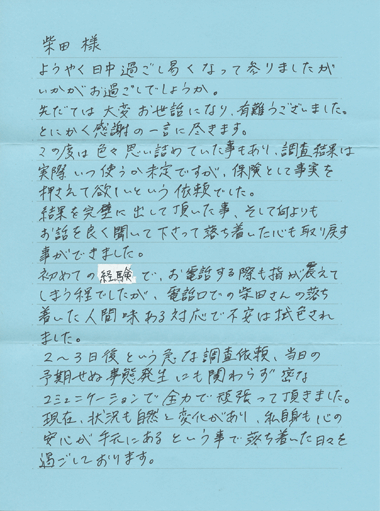 柴田 様
ようやく日中過ごし易くなって参りましたが
いかがお過ごしでしょうか。
先だては大変お世話になり、有難うございました。
とにかく感謝の一言に尽きます。
この度は色々思い詰めていた事もあり、調査結果は
実際いつ使うか未定ですが、保険として事実を
押さえて欲しいという依頼でした。
結果を完璧に出して頂いた事、そして何よりも
お話を良く聞いて下さって落ち着いた心も取り戻す
事ができました。
初めての経験で、お電話する際も指が震えて
しまう程でしたが、電話口での柴田さんの落ち
着いた人間味ある対応で不安は拭色され
ました。
2〜3日後という急な調査依頼、当日の
予期せぬ事態発生にも関わらず密な
コミュニケーションで全力で頑張って頂きました。
現在、状況も自然と変化があり、私自身も心の
安心が手元にあるという事で落ち着いた日々を
過ごしております。